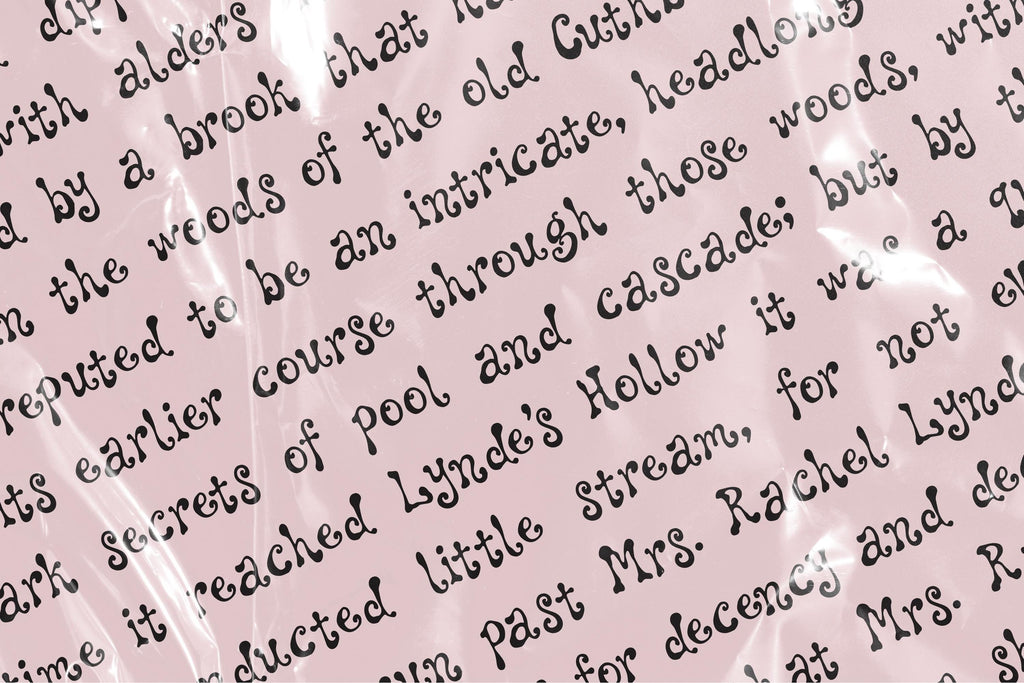 dipp
with alders
d by a brook that ha
n the woods of the old Cuthb
reputed to be an intricate, headlong
its earlier course through those woods, with
ark secrets of pool and cascade; but by th
time it reached Lynde's Hollow it was a qu
ducted little stream, for not ev
un past Mrs. Rachel Lynde
for decency and dec
hat Mrs. R
a sh